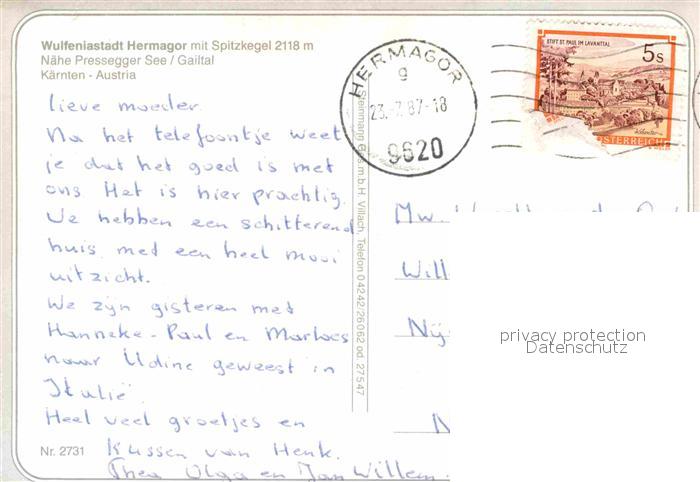 Wulfeniastadt Hermagor mit Spitzkegel 2118 m
Nähe Pressegger See / Gailtal
Kärnten - Austria
lieve moeder.
Na het telefoontje weet
je dat het goed is met
ons Het is hier prachtig.
We hebben een schitterend
huis met een heel mooi
uitzicht.
We zijn gisteren met
Hanneke - Paul en Marloes
naar Udine geweest in
Italië.
Heel veel groetjes en
Kussen van Henk.
Thea Olga en Jan Willem.
Nr. 2731
HERMAGOR
9
23. 87-18
9620
STIFT ST. PAUL IM LAVANTTAL
5s
STERREICH
G.m.b.H. Villach, Telefon 04242/26062 od. 27547
Mw.
Will
Nij
N
privacy protection
Datenschutz